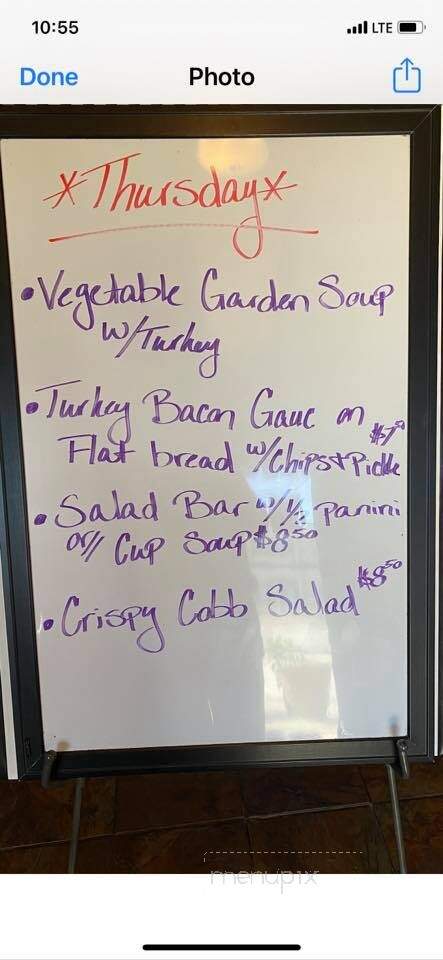 10:55
LTE
Done Photo
*Thursday*
• Vegetable Garden Soup
w/Turkey
• Turkey Bacon Gauc on $7
Flat bread w/Chips+Pickle
• Salad Bar w/ 1/2 panini
or// Cup Soup $8.50
• Crispy Cobb Salad $8.50
menupix